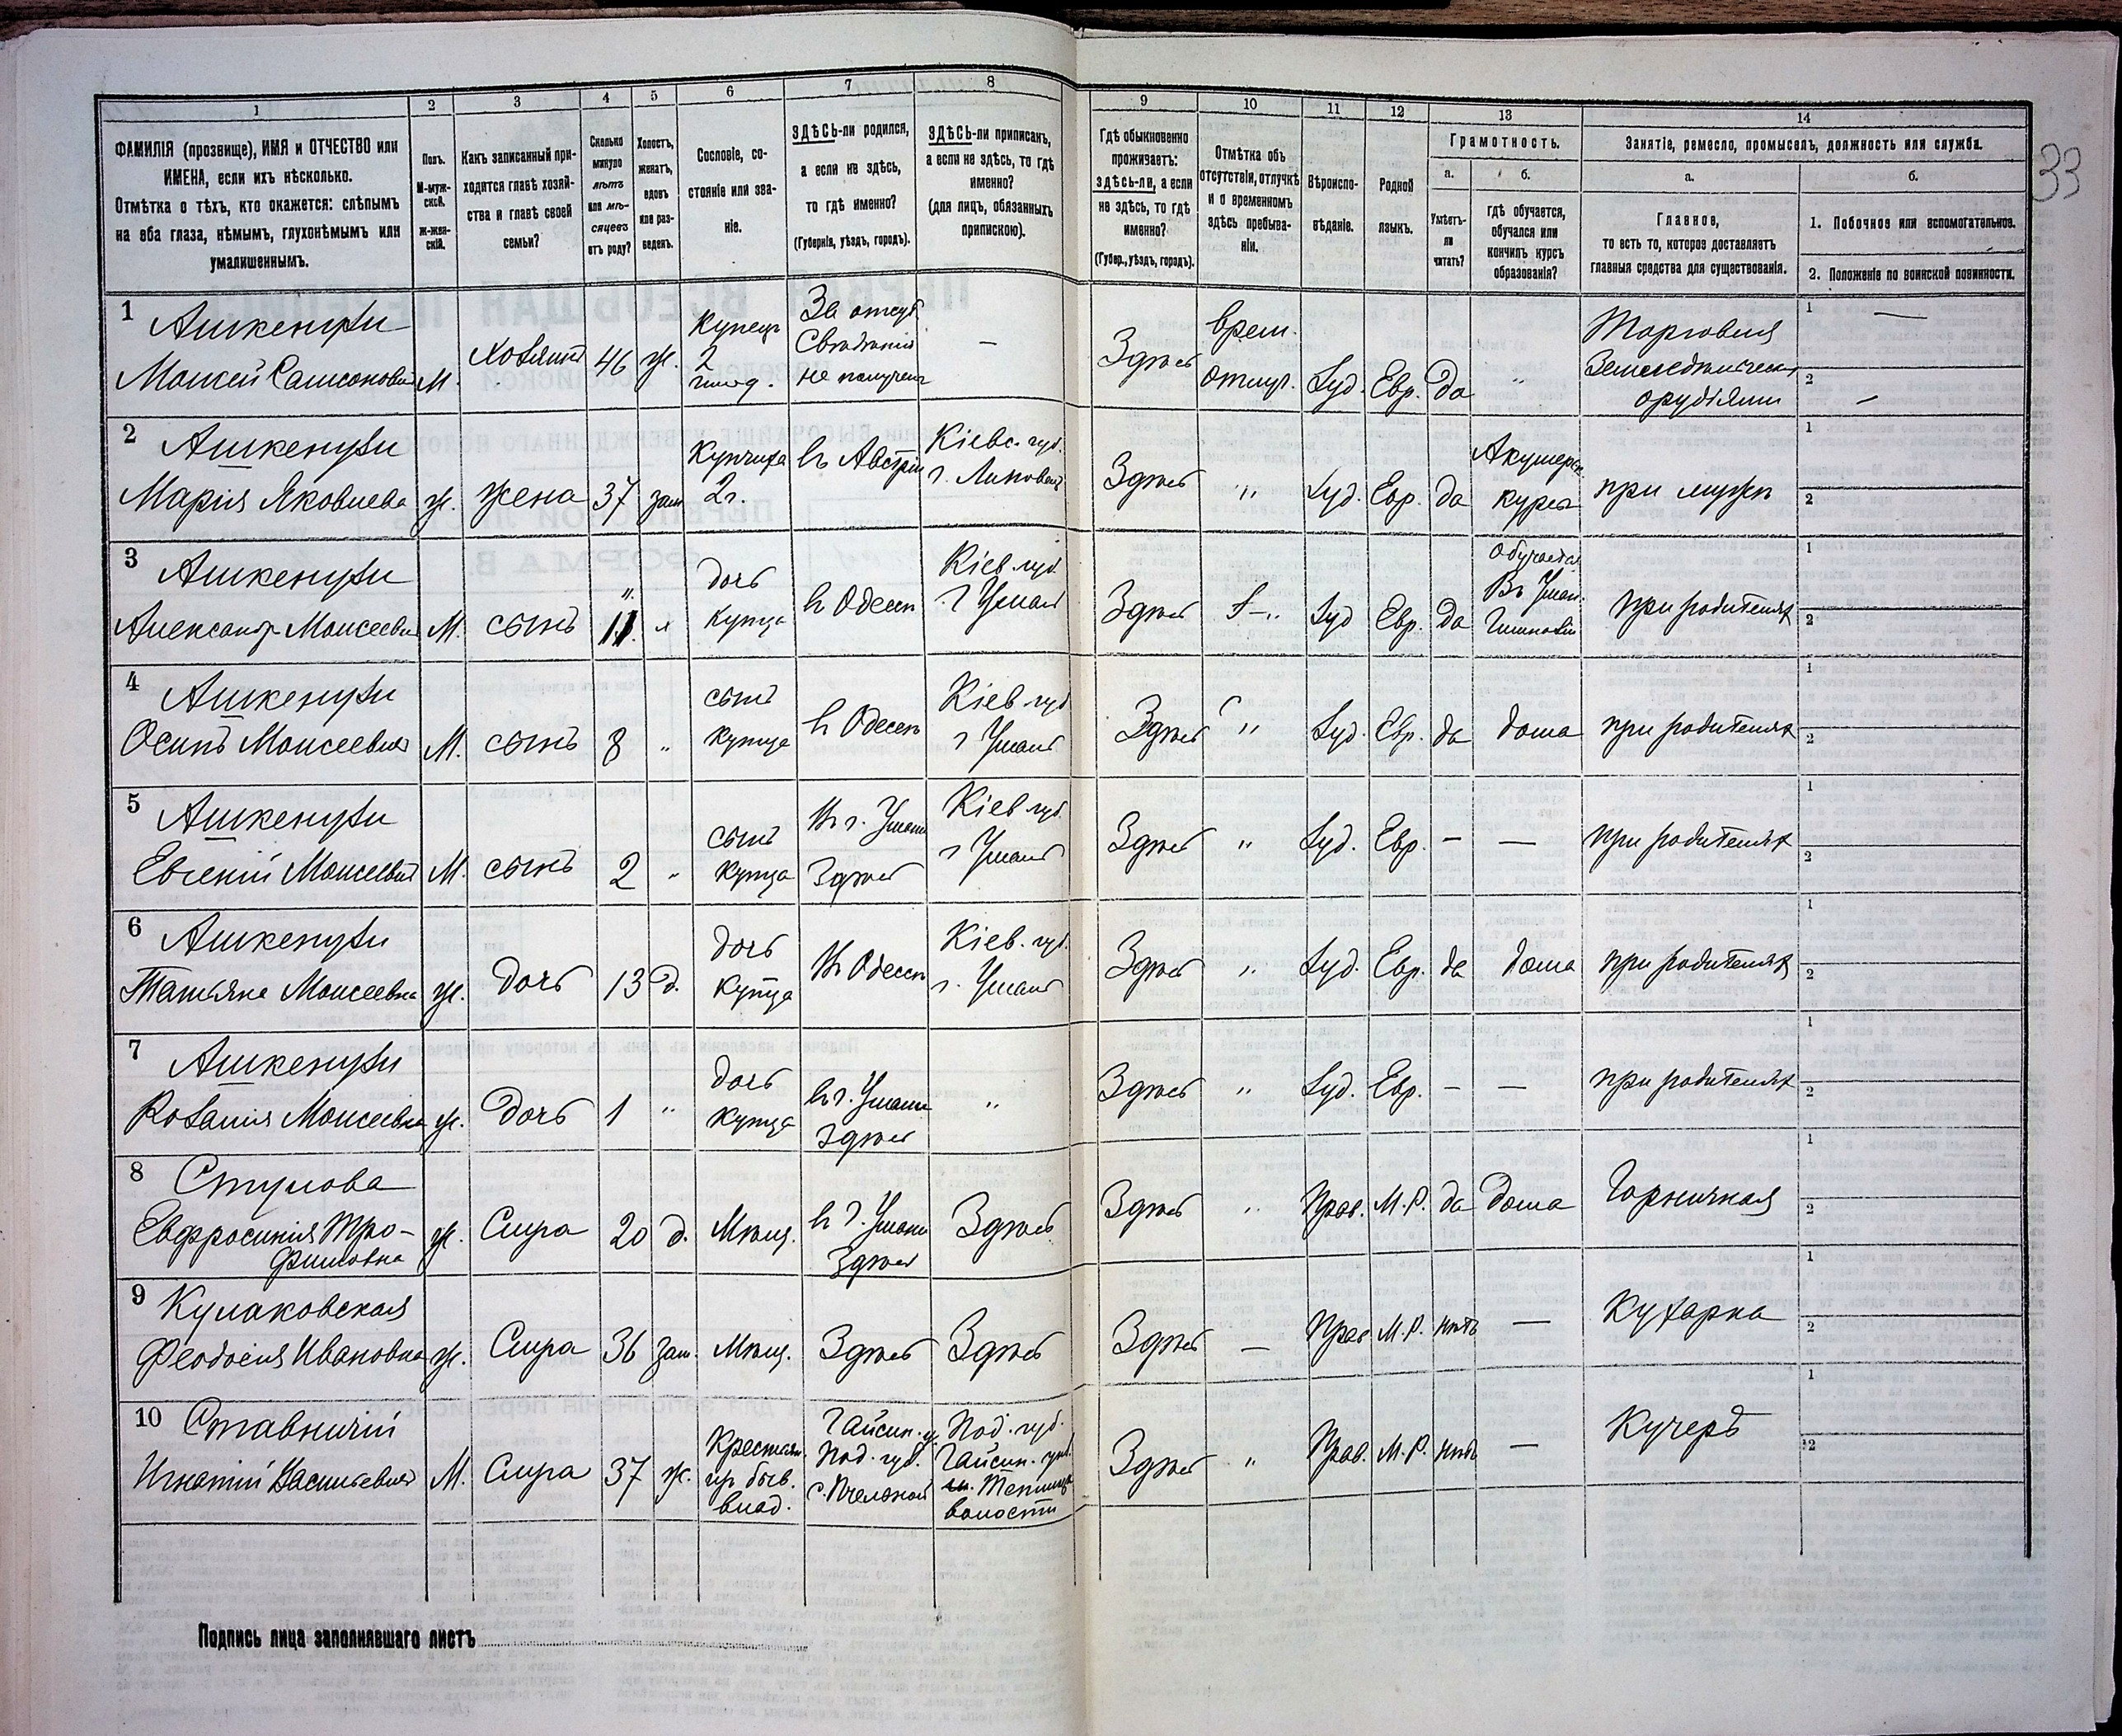 33
1 2 3 4 5 6 7 8 9 10 11 12 13 14
ФАМИЛІЯ (прозвище), ИМЯ и ОТЧЕСТВО или
ИМЕНА, если ихъ нѣсколько.
Отмѣтка о тѣхъ, кто окажется: слѣпымъ
на оба глаза, нѣмымъ, глухонѣмымъ или
умалишеннымъ.
Полъ.
М-муж-
ской.
ж-жен-
скій.
Какъ записанный при-
ходится главѣ хозяй-
ства и главѣ своей
семьи?
Сколько
минуло
лѣтъ
или мѣ-
сяцевъ
отъ роду?
Холостъ,
женатъ,
вдовъ
или раз-
веденъ.
Сословіе, со-
стояніе или зва-
ніе.
ЗДѢСЬ-ли родился,
а если не здѣсь,
то гдѣ именно?
(Губернія, уѣздъ, городъ).
ЗДѢСЬ-ли приписанъ,
а если не здѣсь, то гдѣ
именно?
(для лицъ, обязанныхъ
припискою).
Гдѣ обыкновенно
проживаетъ:
здѣсь-ли, а если
не здѣсь, то гдѣ
именно?
(Губер., уѣздъ, городъ).
Отмѣтка объ
отсутствіи, отлучкѣ
и о временномъ
здѣсь пребыва-
ніи.
Вѣроиспо-
вѣданіе.
Родной
языкъ.
Грамотность.
а.
Умѣетъ-
ли
читать?
б.
гдѣ обучается,
обучался или
кончилъ курсъ
образованія?
Занятіе, ремесло, промыселъ, должность или служба.
а.
Главное,
то есть то, которое доставляетъ
главныя средства для существованія.
б.
1. Побочное или вспомогательное.
2. Положеніе по воинской повинности.
1 Ашкенузи
Моисей Самсоновичъ М. Хозяинъ 46 ж.
Купецъ
2
гильд.
За отсут.
Свѣдѣній
не получено
—
Здѣсь
врем.
отлуч.
Іуд. Евр. да "
Торговля
Земледѣльческ.
орудіями
1 —
2 —
2 Ашкенузи
Марія Яковлева ж. жена 37 зам
Купчиха
2г.
въ Австріи
Кіевс. губ.
г. Липовецъ
Здѣсь " Іуд. Евр. да
Акушерск.
курсы
при мужѣ
1
2
3 Ашкенузи
Александръ Моисеевичъ М. сынъ 11.
дочь
купца
въ Одессѣ
Кіев. губ.
г Умань
Здѣсь Іуд Евр. да
Обучается
Въ Уман.
Гимназіи
при родителях
1
2
4 Ашкенузи
Осипъ Моисеевичъ М. сынъ 8 "
сынъ
купца
въ Одессѣ
Кіев губ
г Умань
Здѣсь " Іуд. Евр. да дома при родителях
1
2
5 Ашкенузи
Евгеній Моисеевичъ М. сынъ 2 "
сынъ
купца
Въ г. Умани
Здѣсь
Кіев губ.
г Умань
Здѣсь " Іуд. Евр. — — при родителях
1
2
6 Ашкенузи
Татьяна Моисеевна ж. Дочь 13 д.
дочь
купца
Въ Одессѣ
Кіев. губ.
г. Умань
Здѣсь " Іуд. Евр. да дома при родителях
1
2
7 Ашкенузи
Розалія Моисеевна ж. Дочь 1 "
дочь
купца
въ г. Умани
здѣсь
"
Здѣсь " Іуд. Евр. — — при родителях
1
2
8 Стулова
Евфросинія Тро-
фимовна
ж. Слуга 20 д. Мѣщ.
въ г. Умани
Здѣсь
Здѣсь
Здѣсь " Прав. М.Р. да дома Горничная
1
2
9 Кулаковская
Феодосія Ивановна ж. Слуга 36 зам. Мѣщ. Здѣсь Здѣсь
Здѣсь — Прав М.Р. нѣтъ — Кухарка
1
2
10 Ставничій
Игнатій Васильевичъ М. Слуга 37 ж.
Крестьян.
бывш.
влад.
Гайсин. у.
Под. губ.
с. Пчельной
Под. губ.
Гайсин. уѣз.
волости
Здѣсь " Прав. М.Р. нѣтъ — Кучеръ
1
2
Подпись лица заполнявшаго листъ